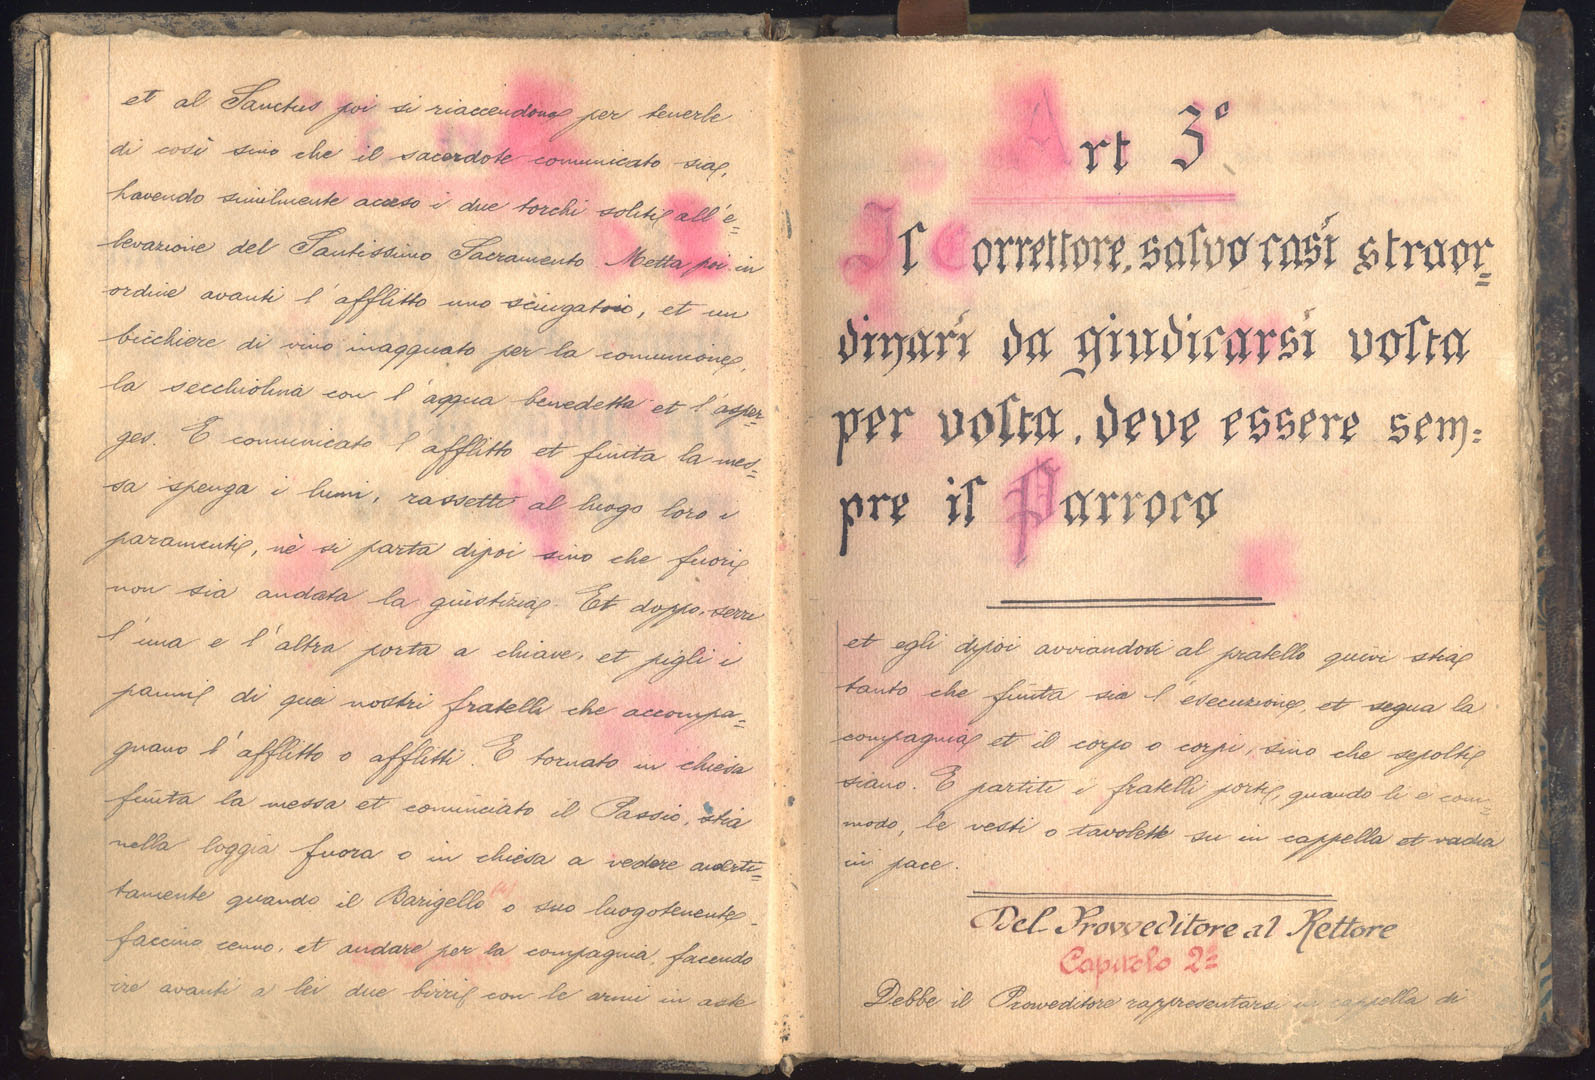 et al Sanctus poi si riaccendono per tenerle
di così sino che il sacerdote comunicato sia,
havendo similmente acceso i due torchi soliti all'e=
levazione del Santissimo Sacramento. Metta poi in
ordine avanti l'afflitto uno sciugatoio, et un
bicchiere di vino inacquato per la comunione,
la secchiolina con l'acqua benedetta et l'asper=
ges. E comunicato l'afflitto et finita la mes=
sa spenga i lumi, rassetti al luogo loro i
paramenti, nè si parta dipoi sino che fuori
non sia andata la giustizia. Et doppo, serri
l'una e l'altra porta a chiave, et pigli i
panni di quei nostri fratelli che accompa=
gnano l'afflitto o afflitti. E tornato in chiesa
finita la messa et cominciato il Passio, stia
nella loggia fuora o in chiesa a vedere averti=
tamente quando il Barigello o suo luogotenente
faccino cenno, et andare per la compagnia, facendo
ire avanti a lei due birri con le armi in aste
Art 3°
Il Correttore, salvo casi straor=
dinari da giudicarsi volta
per volta, deve essere sem=
pre il Parroco
et egli dipoi avviandosi al pratello quivi stia
tanto che finita sia l'esecuzione, et segua la
compagnia et il corpo o corpi, sino che sepolti
siano. E partiti i fratelli porti, quando li è com=
modo, le vesti o tavolette su in cappella et vadia
in pace.
Del Provveditore al Rettore
Capitolo 2°
Debbe il Proveditore rappresentarsi in cappella di